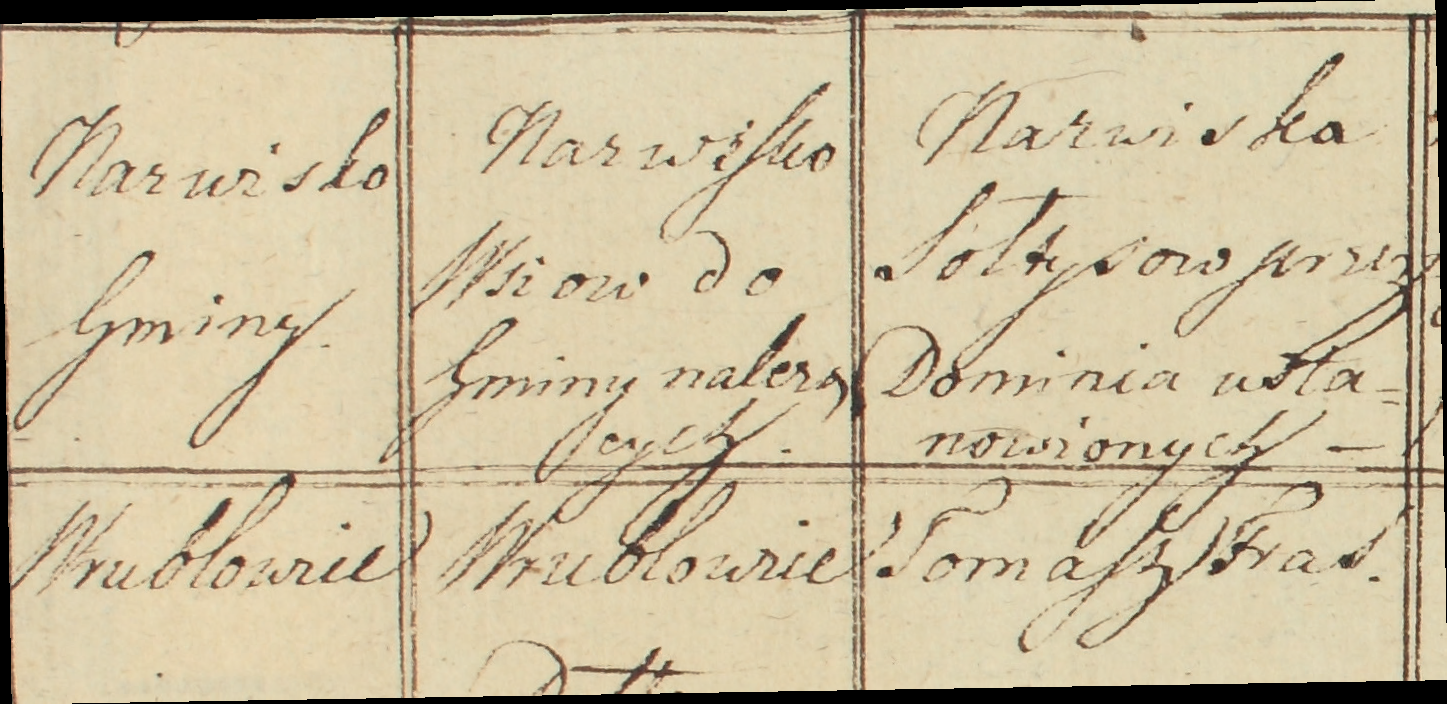 Narwisko
Gminy
Narwisko
Wsiow do
Gminy należą
cych.
Narwiska
Soltysow przez
Dominia usta-
nowionych —
Wrublowice
Wrublowice
Tomasz Fras.
Dtto